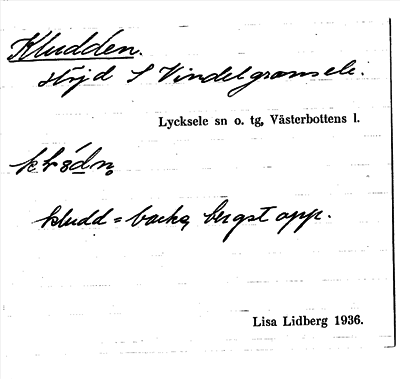 Kludden.
höjd S Vindelgransele.
Lycksele sn o. tg, Västerbottens l.
kludd = backe, bergstopp.
Lisa Lidberg 1936.